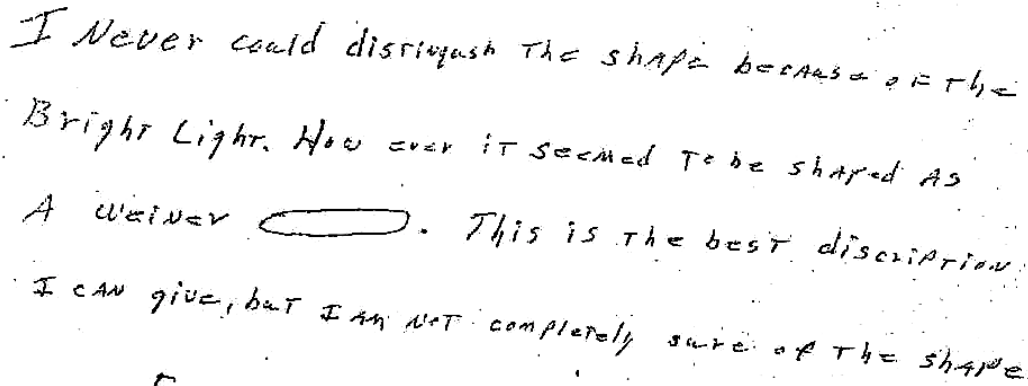 I Never could distinqush The shape because of The
Bright Light. How ever it seemed To be shaped As
A weiner . This is The best discription
I can give, but I am not completely sure of The shape